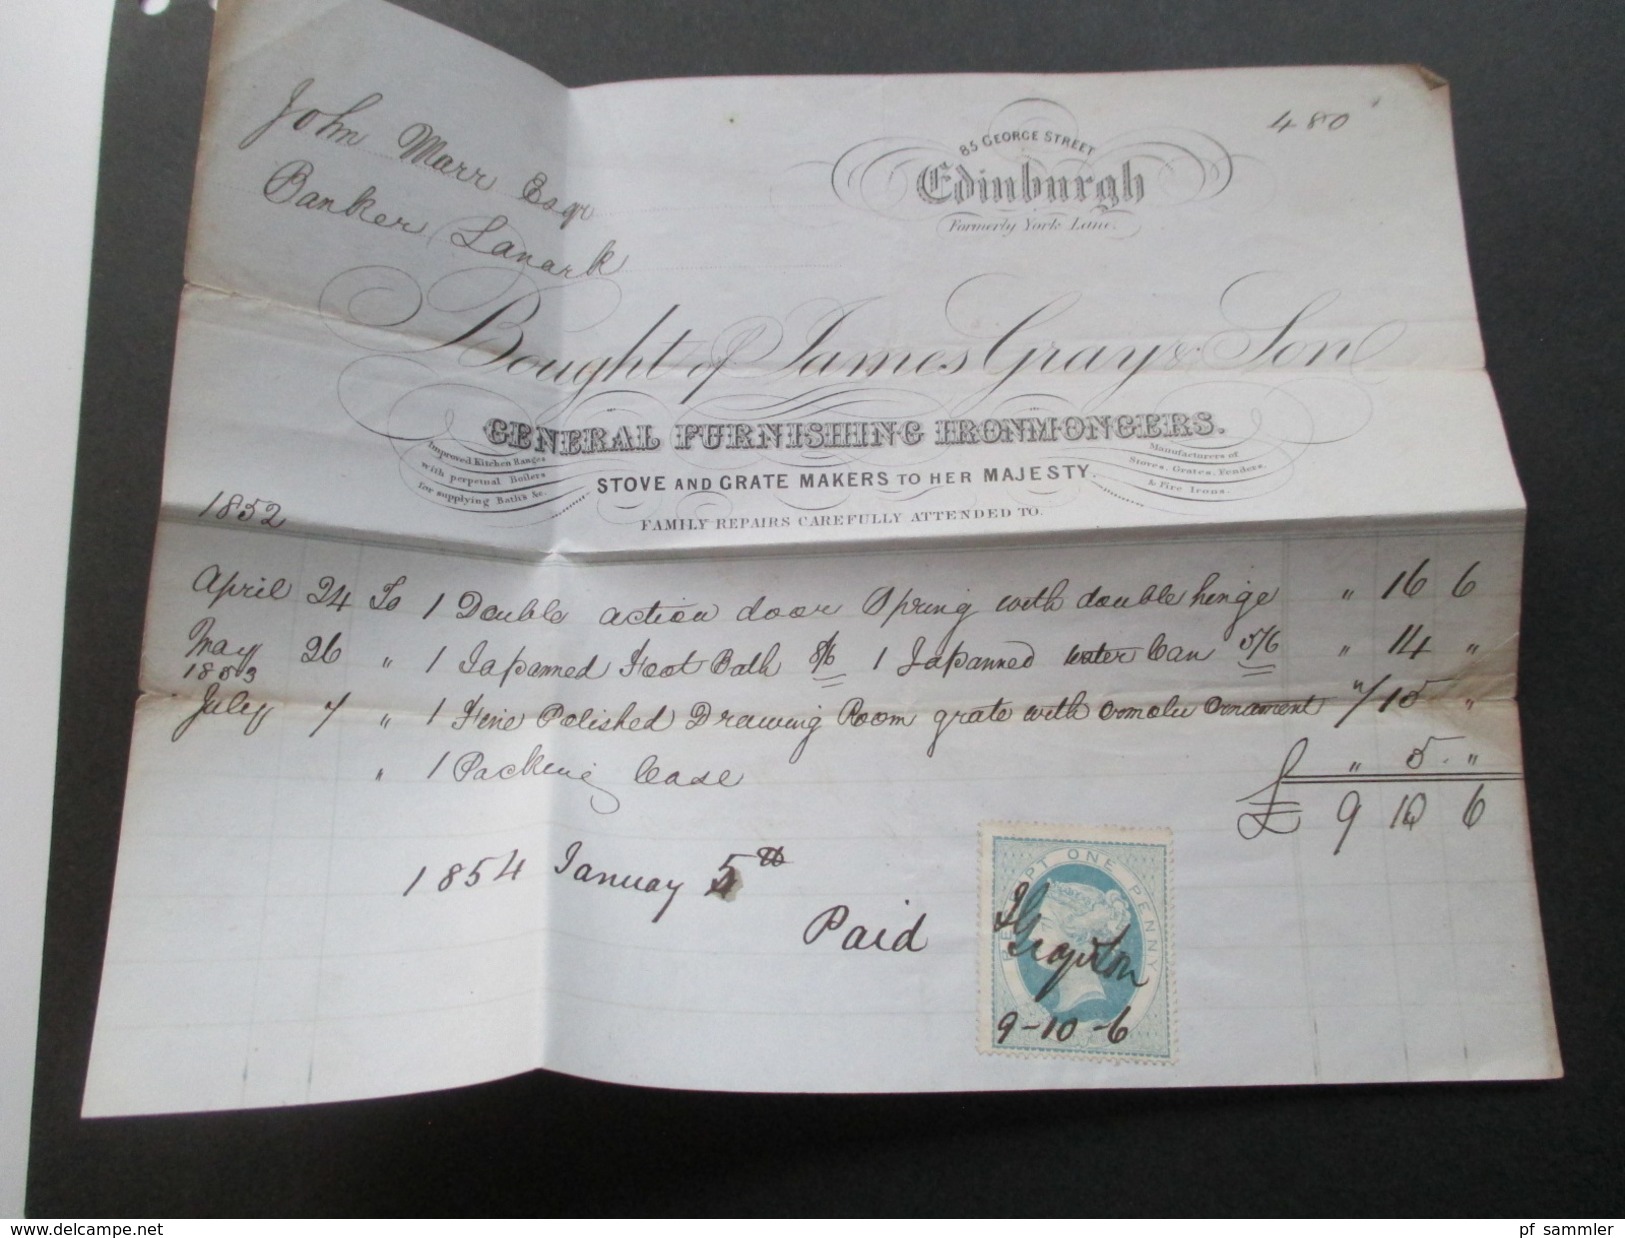 480
John Marr Esqr
Banker Lanark
85 GEORGE STREET
Edinburgh
Formerly York Lane.
Bought of James Gray & Son
GENERAL FURNISHING IRONMONGERS.
Improved Kitchen Ranges
with perpetual Boilers
for supplying Baths &c.
STOVE AND GRATE MAKERS TO HER MAJESTY.
Manufacturers of
Stoves, Grates, Fenders,
& Fire Irons.
FAMILY REPAIRS CAREFULLY ATTENDED TO.
1852
April 24 To 1 Double action door Spring with double hinge " 16 6
May 26 " 1 Japanned Foot Bath 8/6 1 Japanned water Can 5/6 " 14 "
1853
July 7 " 1 Fine Polished Drawing Room grate with ormolu ornament 15 "
" 1 Packing Case " 5 "
£ 9 10 6
1854 January 5th
Paid
RECEIPT ONE PENNY
J Gray & Son
9-10-6
www.delcampe.net
pf_sammler